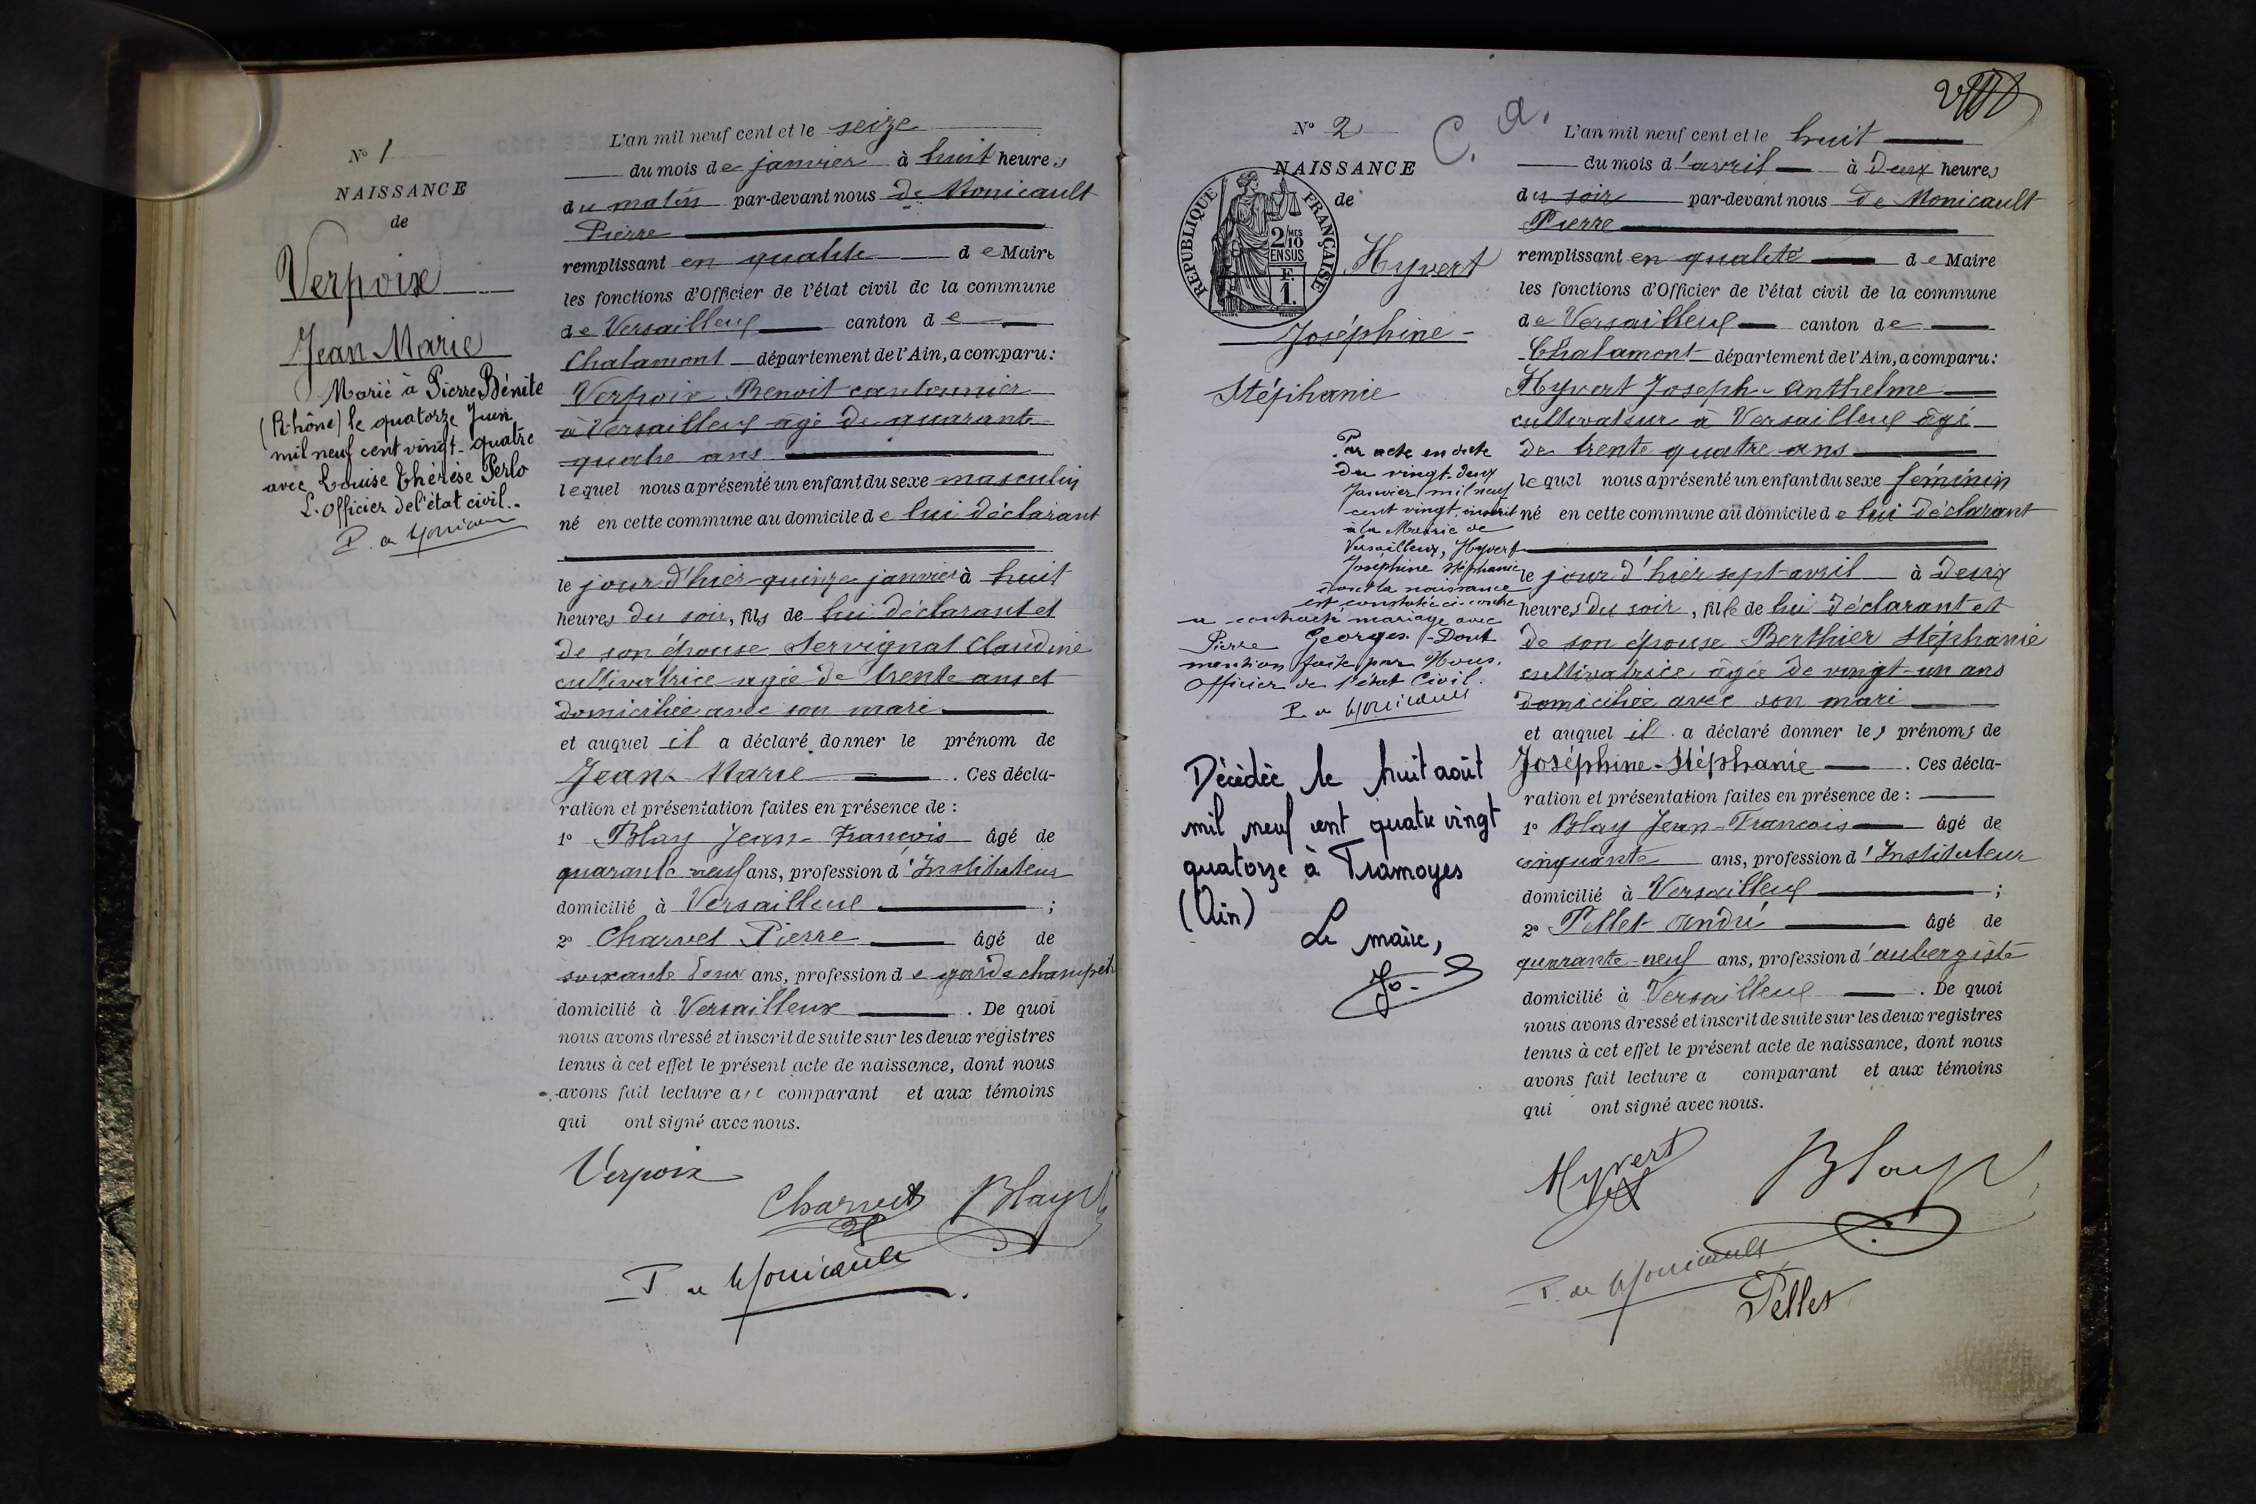 N° 1
NAISSANCE
de
Verpoix
Jean Marie
Marié à Pierre Bénite
(Rhône) le quatorze Juin
mil neuf cent vingt-quatre
avec Louise Thérèse Perlo
L'officier de l'état civil.
P. de Monicault
L'an mil neuf cent et le seize
du mois de janvier à huit heures
du matin par-devant nous de Monicault
Pierre
remplissant en qualité de Maire
les fonctions d'Officier de l'état civil de la commune
de Versailleux canton de
Chalamont département de l'Ain, a comparu:
Verpoix Benoit cantonnier
à Versailleux âgé de quarante
quatre ans
lequel nous a présenté un enfant du sexe masculin
né en cette commune au domicile de lui déclarant
le jour d'hier quinze janvier à huit
heures du soir, fils de lui déclarant et
de son épouse Servignat Claudine
cultivatrice agée de trente ans et
domiciliée avec son mari
et auquel il a déclaré donner le prénom de
Jean-Marie . Ces décla-
ration et présentation faites en présence de :
1° Blay Jean-François âgé de
quarante neuf ans, profession d'Instituteur
domicilié à Versailleux ;
2° Charvet Pierre âgé de
soixante deux ans, profession de garde champêtre
domicilié à Versailleux . De quoi
nous avons dressé et inscrit de suite sur les deux registres
tenus à cet effet le présent acte de naissance, dont nous
avons fait lecture au comparant et aux témoins
qui ont signé avec nous.
Verpoix
Charvet Blay
P. de Monicault
N° 2
C. a.
NAISSANCE
de
RÉPUBLIQUE FRANÇAISE
2/10 MES
EN SUS
F.
1.
Hyvert
Joséphine-
Stéphanie
Par acte en date
du vingt-deux
Janvier mil neuf
cent vingt, inscrit
à la Mairie de
Versailleux, Hyvert
Joséphine Stéphanie
dont la naissance
est constatée ci-contre
a contracté mariage avec
Pierre Georges.- Dont
mention faite par Nous,
Officier de l'état Civil.
P. de Monicault
Décédée le huit août
mil neuf cent quatre vingt
quatorze à Tramoyes
(Ain)
Le maire,
L'an mil neuf cent et le huit
du mois d'avril à deux heures
du soir par-devant nous de Monicault
Pierre
remplissant en qualité de Maire
les fonctions d'Officier de l'état civil de la commune
de Versailleux canton de
Chalamont département de l'Ain, a comparu:
Hyvert Joseph-Anthelme
cultivateur à Versailleux âgé
de trente quatre ans
lequel nous a présenté un enfant du sexe féminin
né en cette commune au domicile de lui déclarant
le jour d'hier sept avril à deux
heures du soir, fille de lui déclarant et
de son épouse Berthier Stéphanie
cultivatrice âgée de vingt-un ans
domiciliée avec son mari
et auquel il a déclaré donner les prénoms de
Joséphine-Stéphanie . Ces décla-
ration et présentation faites en présence de :
1° Blay Jean-François âgé de
cinquante ans, profession d'Instituteur
domicilié à Versailleux ;
2° Pellet André âgé de
quarante-neuf ans, profession d'aubergiste
domicilié à Versailleux . De quoi
nous avons dressé et inscrit de suite sur les deux registres
tenus à cet effet le présent acte de naissance, dont nous
avons fait lecture a comparant et aux témoins
qui ont signé avec nous.
Hyvert Blay
P. de Monicault
Pellet